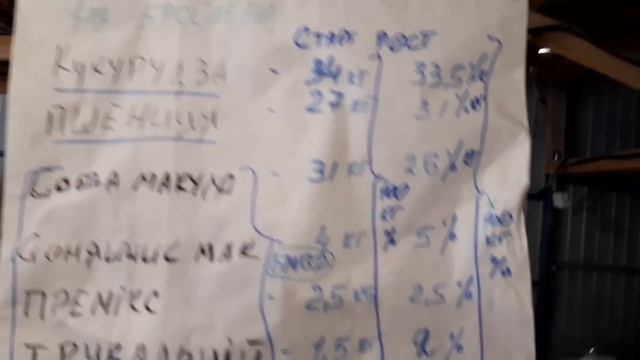 СТАРТ РОСТ
КУКУРУДЗА - 34 кг 33,5% кг
ПШЕНИЦЯ - 27 кг 31% кг
СОЕВА МАКУХА - 31 кг 26% кг
100 кг % 100 кг %
СОНЯШНИК МАК 4 кг 5%
ПРЕМІКС - 2,5 кг 2,5%
- 1,5 кг 2%